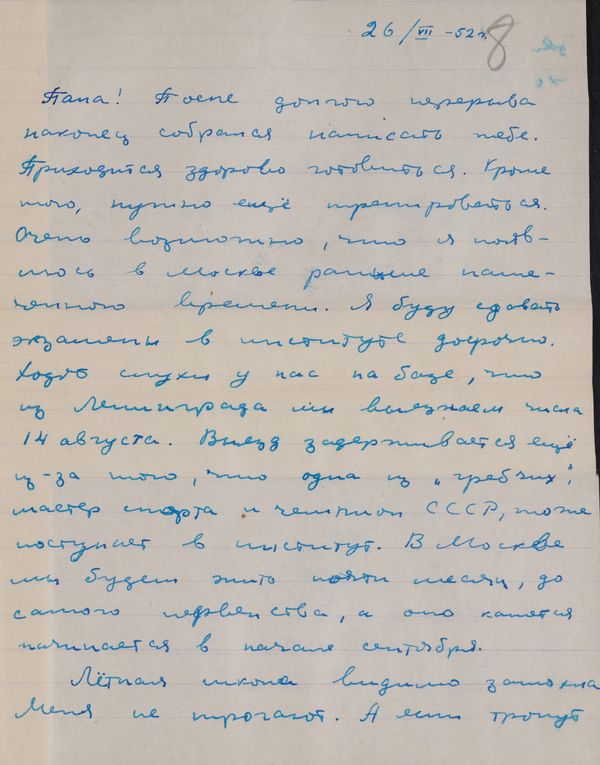 26/VII -52 г. 8
Папа! После долгого перерыва
наконец собрался написать тебе.
Приходится здорово готовиться. Кроме
того, нужно ещё тренироваться.
Очень возможно, что я появ-
люсь в Москве раньше наме-
ченного времени. Я буду сдавать
экзамены в институте досрочно.
Ходят слухи у нас на базе, что
из Ленинграда мы выезжаем числа
14 августа. Выезд задерживается ещё
из-за того, что одна из „гребчих",
мастер спорта и чемпион СССР, тоже
поступает в институт. В Москве
мы будем жить почти месяц, до
самого первенства, а оно кажется
начинается в начале сентября.
Лётная школа видимо заглохла
Меня не трогают. А если тронут